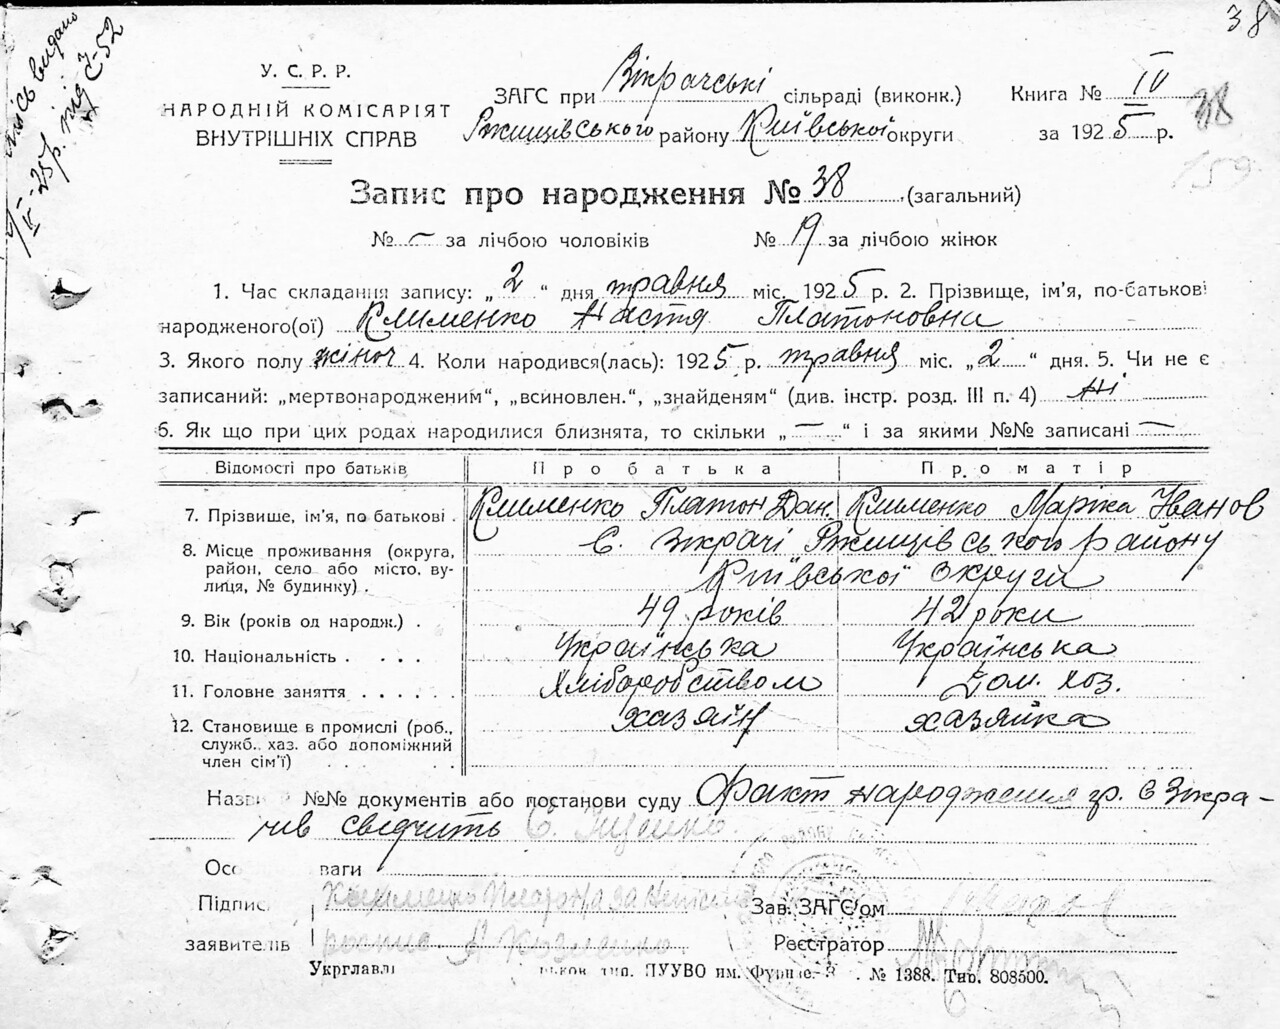 38
У. С. Р. Р.
НАРОДНІЙ КОМІСАРІЯТ
ВНУТРІШНІХ СПРАВ
ЗАГС при Зікрачські сільраді (виконк.)
Ржищівського району Київської округи
Книга № IV
за 1925 р.
38
159
видано
25 р. під Č-52
Запис про народження № 38 (загальний)
№ — за лічбою чоловіків № 19 за лічбою жінок
1. Час складання запису: „2“ дня травня міс. 1925 р. 2. Прізвище, ім’я, по-батькові
народженого(ої) Клименко Настя Платоновна
3. Якого полу жіноч 4. Коли народився(лась): 1925 р. травня міс. „2“ дня. 5. Чи не є
записаний: „мертвонародженим“, „всиновлен.“, „знайденям“ (див. інстр. розд. III п. 4) Ні
6. Як що при цих родах народилися близнята, то скільки „—“ і за якими №№ записані —
Відомості про батьків Про батька Про матір
7. Прізвище, ім’я, по батькові . Клименко Платон Дан. Клименко Марійка Іванов
8. Місце проживання (округа, район, село або місто, вулиця, № будинку) . С. Зікрачі Ржищівського району
Київської округи
9. Вік (років од народж.) . 49 років 42 роки
10. Національність . . . . Українська Українська
11. Головне заняття . . . . . . Хліборобством Дом. хоз.
12. Становище в промислі (роб., хазяїн хазяйка
служб., хаз. або допоміжний
член сім’ї) . . . . . .
Назв №№ документів або постанови суду Факт народження гр. С Зікра-
чів свідчить Є.
Осо ваги
Підпис Клименко Платона за неписм.
заявителів роспис. А Козленко.
Зав. ЗАГС’ом
Реєстратор
Укрглавлі № 1388. Тир. 808500.